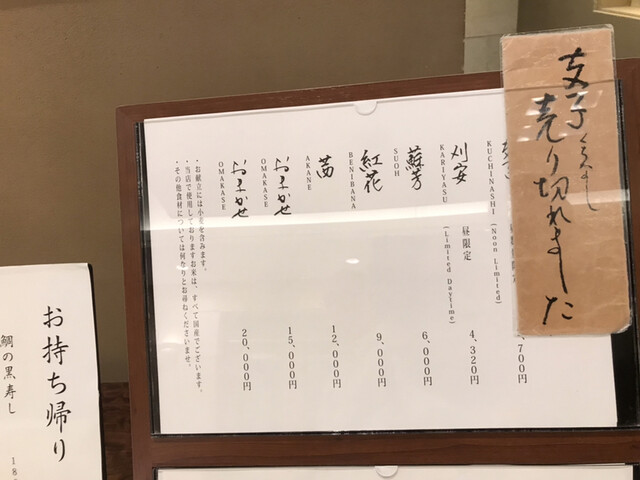 支子くちなし
売り切れました
KUCHINASHI (Noon Limited)
,700円
刈安 昼限定 4,320円
KARIYASU (Limited Daytime)
蘇芳 6,000円
SUOH
紅花 9,000円
BENIBANA
茜 12,000円
AKANE
おまかせ 15,000円
OMAKASE
おまかせ 20,000円
OMAKASE
・お献立には小麦を含みます。
・当店で使用しておりますお米は、すべて国産でございます。
・その他食材については何なりとお尋ねくださいませ。
お持ち帰り
鯛の黒寿し
18